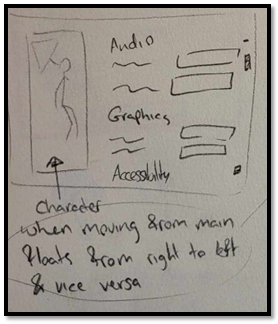 Audio
Graphics
Accessibility
Character
when moving from main
floats from right to left
& vice versa